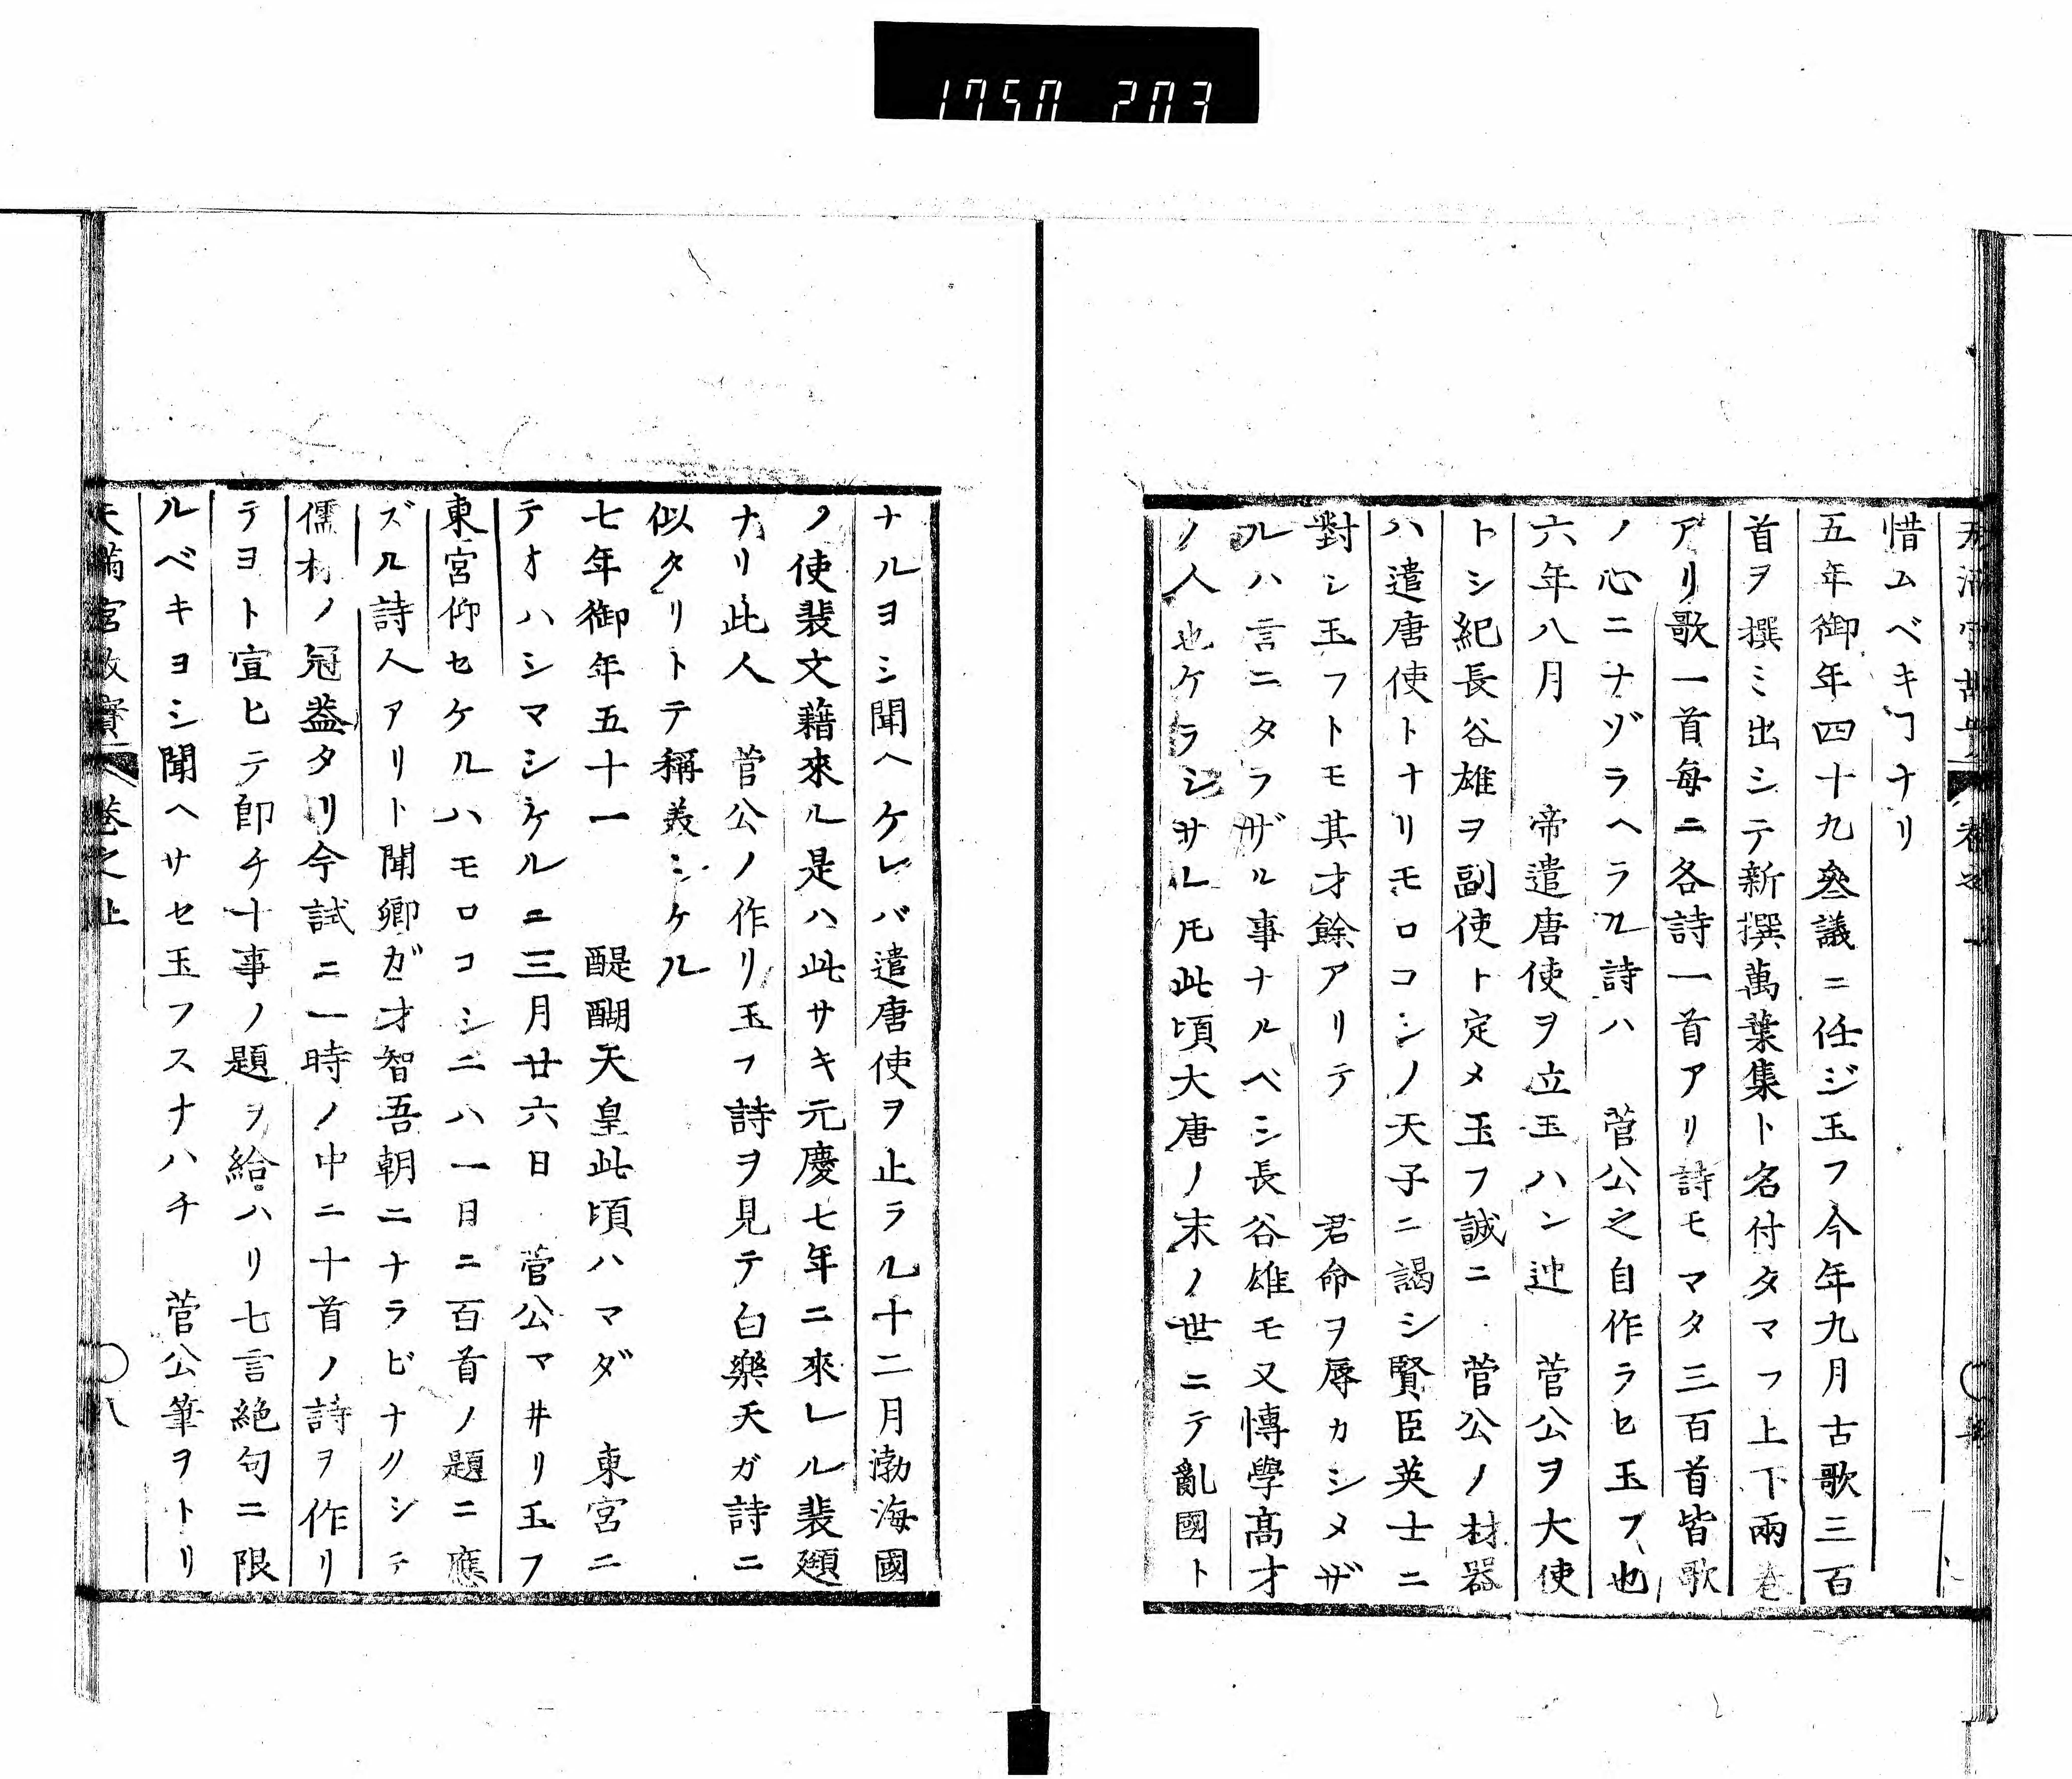 1750 203
惜ムベキヿナリ
五年御年四十九參議ニ任ジ玉フ今年九月古歌三百
首ヲ撰ミ出シテ新撰萬葉集ト名付タマフ上下兩巻
アリ歌一首每ニ各詩一首アリ詩モマタ三百首皆歌
ノ心ニナヅラヘラル詩ハ　菅公之自作ラヒ玉フ也
六年八月　帝遣唐使ヲ立玉ハン迚　菅公ヲ大使
トシ紀長谷雄ヲ副使ト定メ玉フ誠ニ　菅公ノ材器
ハ遣唐使トナリモロコシノ天子ニ謁シ賢臣英士ニ
對シ玉フトモ其才餘アリテ　君命ヲ辱カシメザ
ルハ言ニタラザル事ナルベシ長谷雄モ又博學髙才
ノ人也ケラシサレ𪜈此頃大唐ノ末ノ世ニテ亂國ト
ナルヨシ聞ヘケレバ遣唐使ヲ止ラル十二月渤海國
ノ使裴文藉來ル是ハ此サキ元慶七年ニ來レル裴頲
ナリ此人　菅公ノ作リ玉フ詩ヲ見テ白樂天ガ詩ニ
似タリトテ稱美シケル
七年御年五十一　醍醐天皇此頃ハマダ　東宮ニ
テオハシマシケルニ三月廿六日　菅公マ井リ玉フ
東宮仰セケルハモロコシニハ一日ニ百首ノ題ニ應
ズル詩人アリト聞卿ガ才智吾朝ニナラビナクシテ
儒材ノ冠葢タリ今試ニ一時ノ中ニ十首ノ詩ヲ作リ
テヨト宣ヒテ卽チ十事ノ題ヲ給ハリ七言絶句ニ限
ルベキヨシ聞ヘサセ玉フスナハチ　菅公筆ヲトリ
天滿宮故實　巻之上　〇八